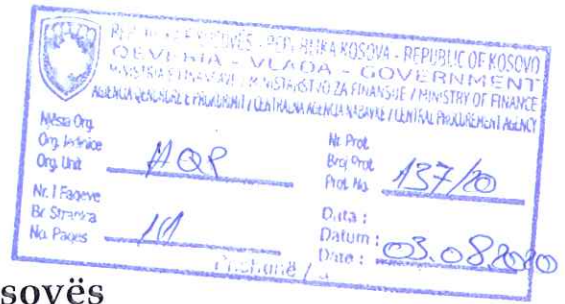 REPUBLIKA E KOSOVËS - REPUBLIKA KOSOVA - REPUBLIC OF KOSOVO
QEVERIA - VLADA - GOVERNMENT
MINISTRIA E FINANCAVE / MINISTARSTVO ZA FINANSIJE / MINISTRY OF FINANCE
AGJENCIA QENDRORE E PROKURIMIT / CENTRALNA AGENCIJA NABAVKE / CENTRAL PROCUREMENT AGENCY
Njësia Org.
Org. Jedinice
Org. Unit AQP
Nr. Prot.
Broj Prot.
Prot. No. 137/20
Nr. I Faqeve
Br. Stranica
No. Pages
Data :
Datum :
Date : 03.08.2020
sovës